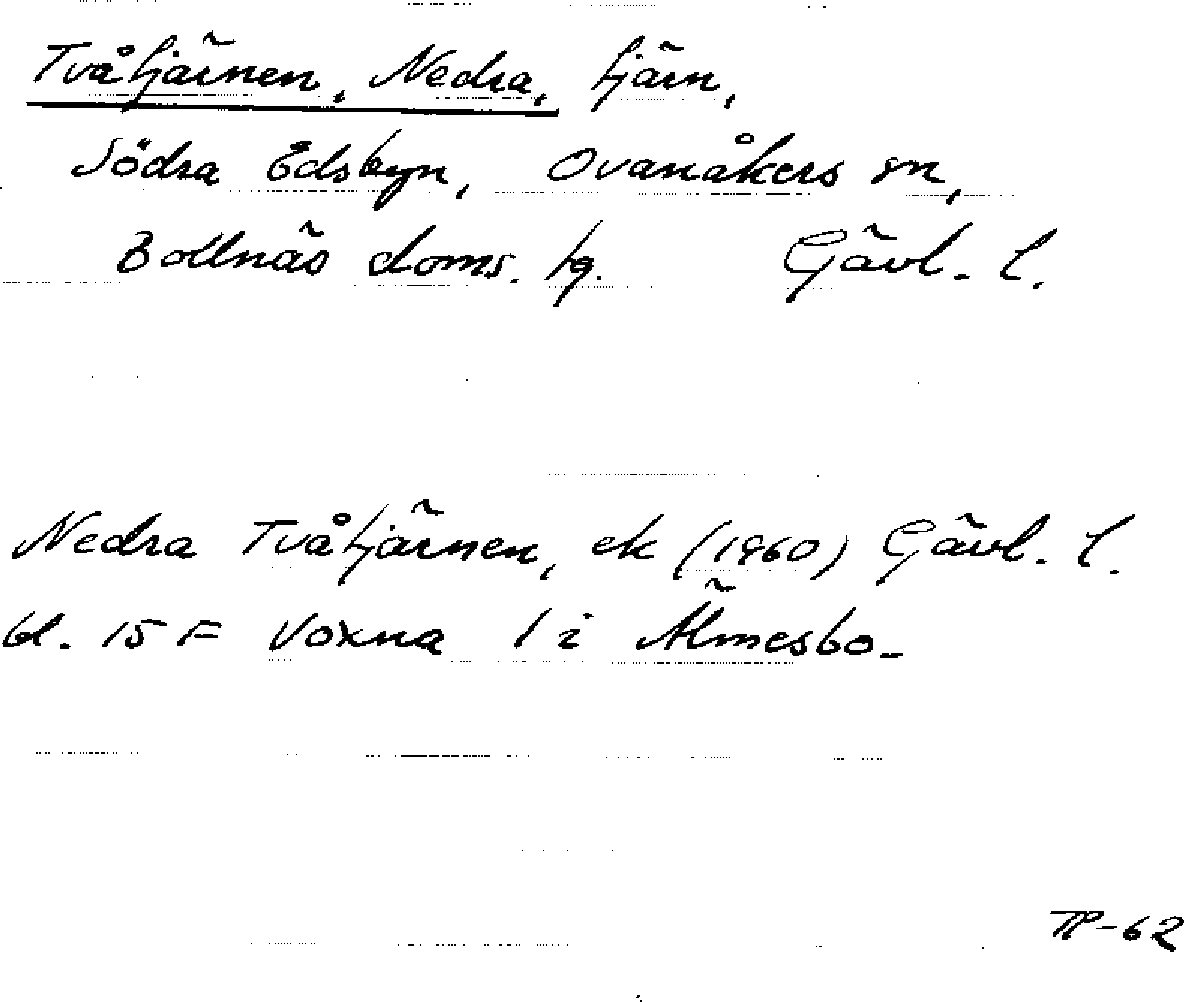 Tvåtjärnen, Nedra, tjärn,
Södra Edsbyn, Ovanåkers sn,
Bollnäs doms. tg. Gävl. l.
Nedra Tvåtjärnen, ek (1960) Gävl. l.
bl. 15 F Voxna 1 i Älmesbo.
TP-62